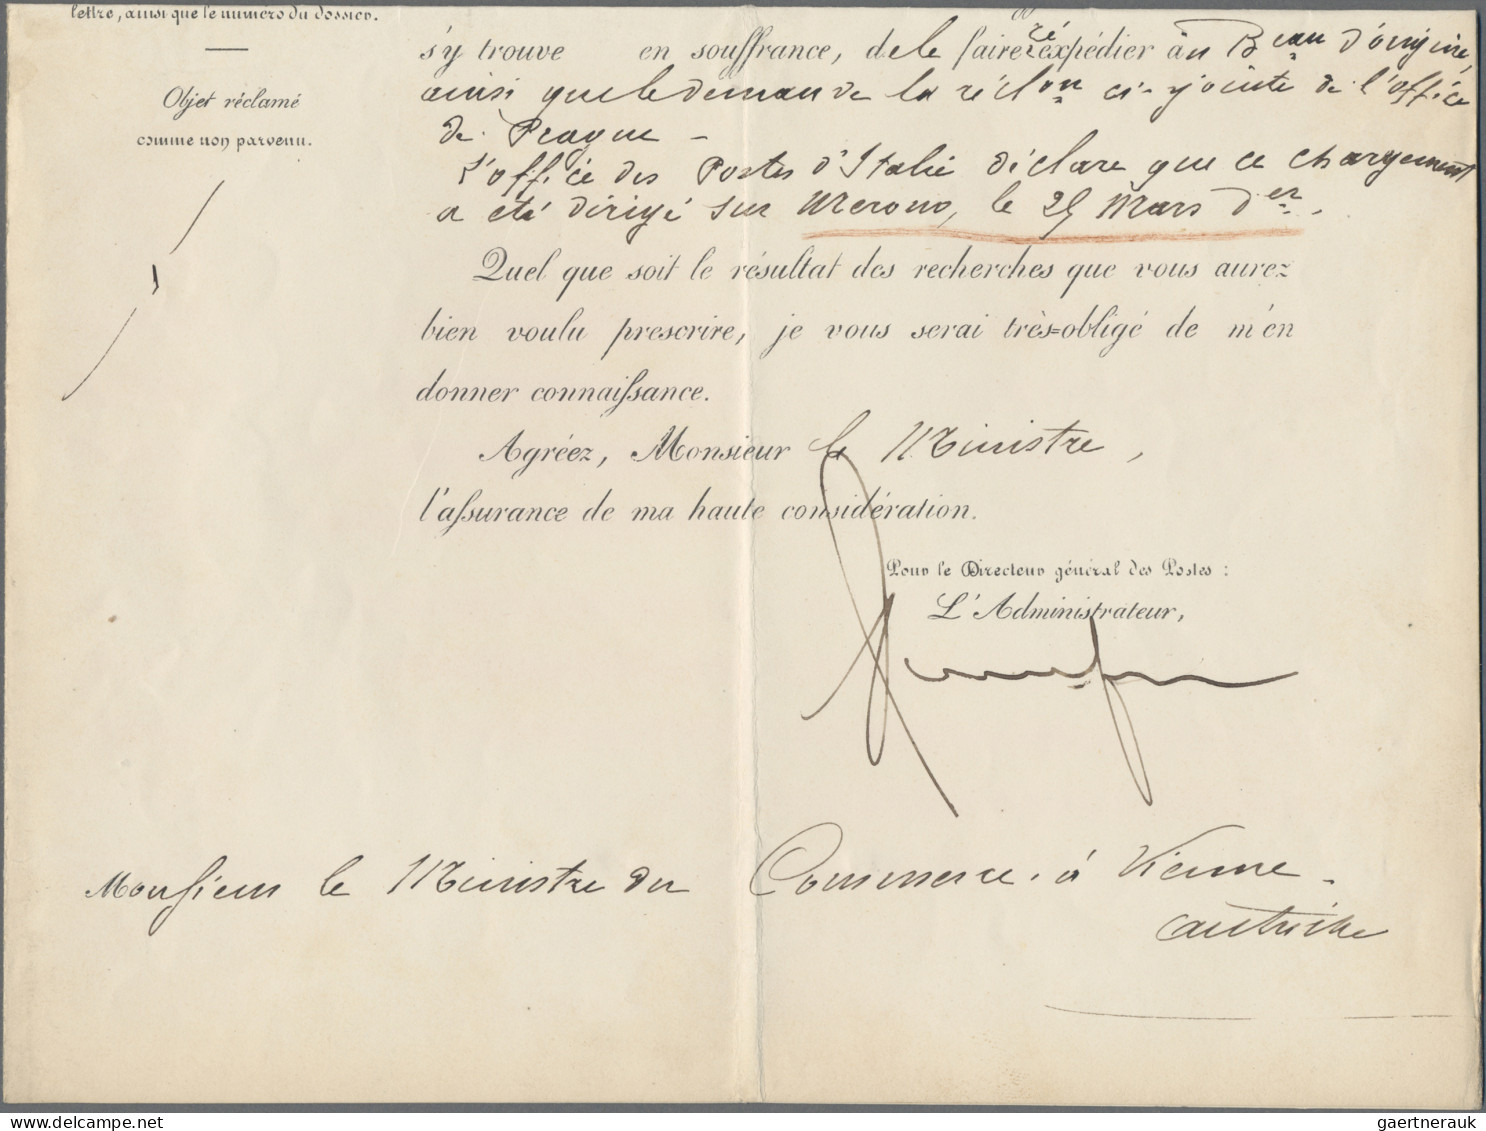 lettre, ainsi que le numéro du dossier.
Objet réclamé
comme non parvenu.
s'y trouve en souffrance, de le faire réexpédier au Beau d'origine,
ainsi que la demande de la récl.on ci-jointe de l'office
de Prague —
L'office des Postes d'Italie déclare que ce chargement
a été dirigé sur le 25 Mars der.
Quel que soit le résultat des recherches que vous aurez
bien voulu prescrire, je vous serai très=obligé de m'en
donner connaissance.
Agréez, Monsieur le Ministre,
l'assurance de ma haute considération.
Pour le Directeur général des Postes :
L'Administrateur,
Monsieur le Ministre du Commerce. à Vienne -
Autriche
delcampe.net
gaertnerauk